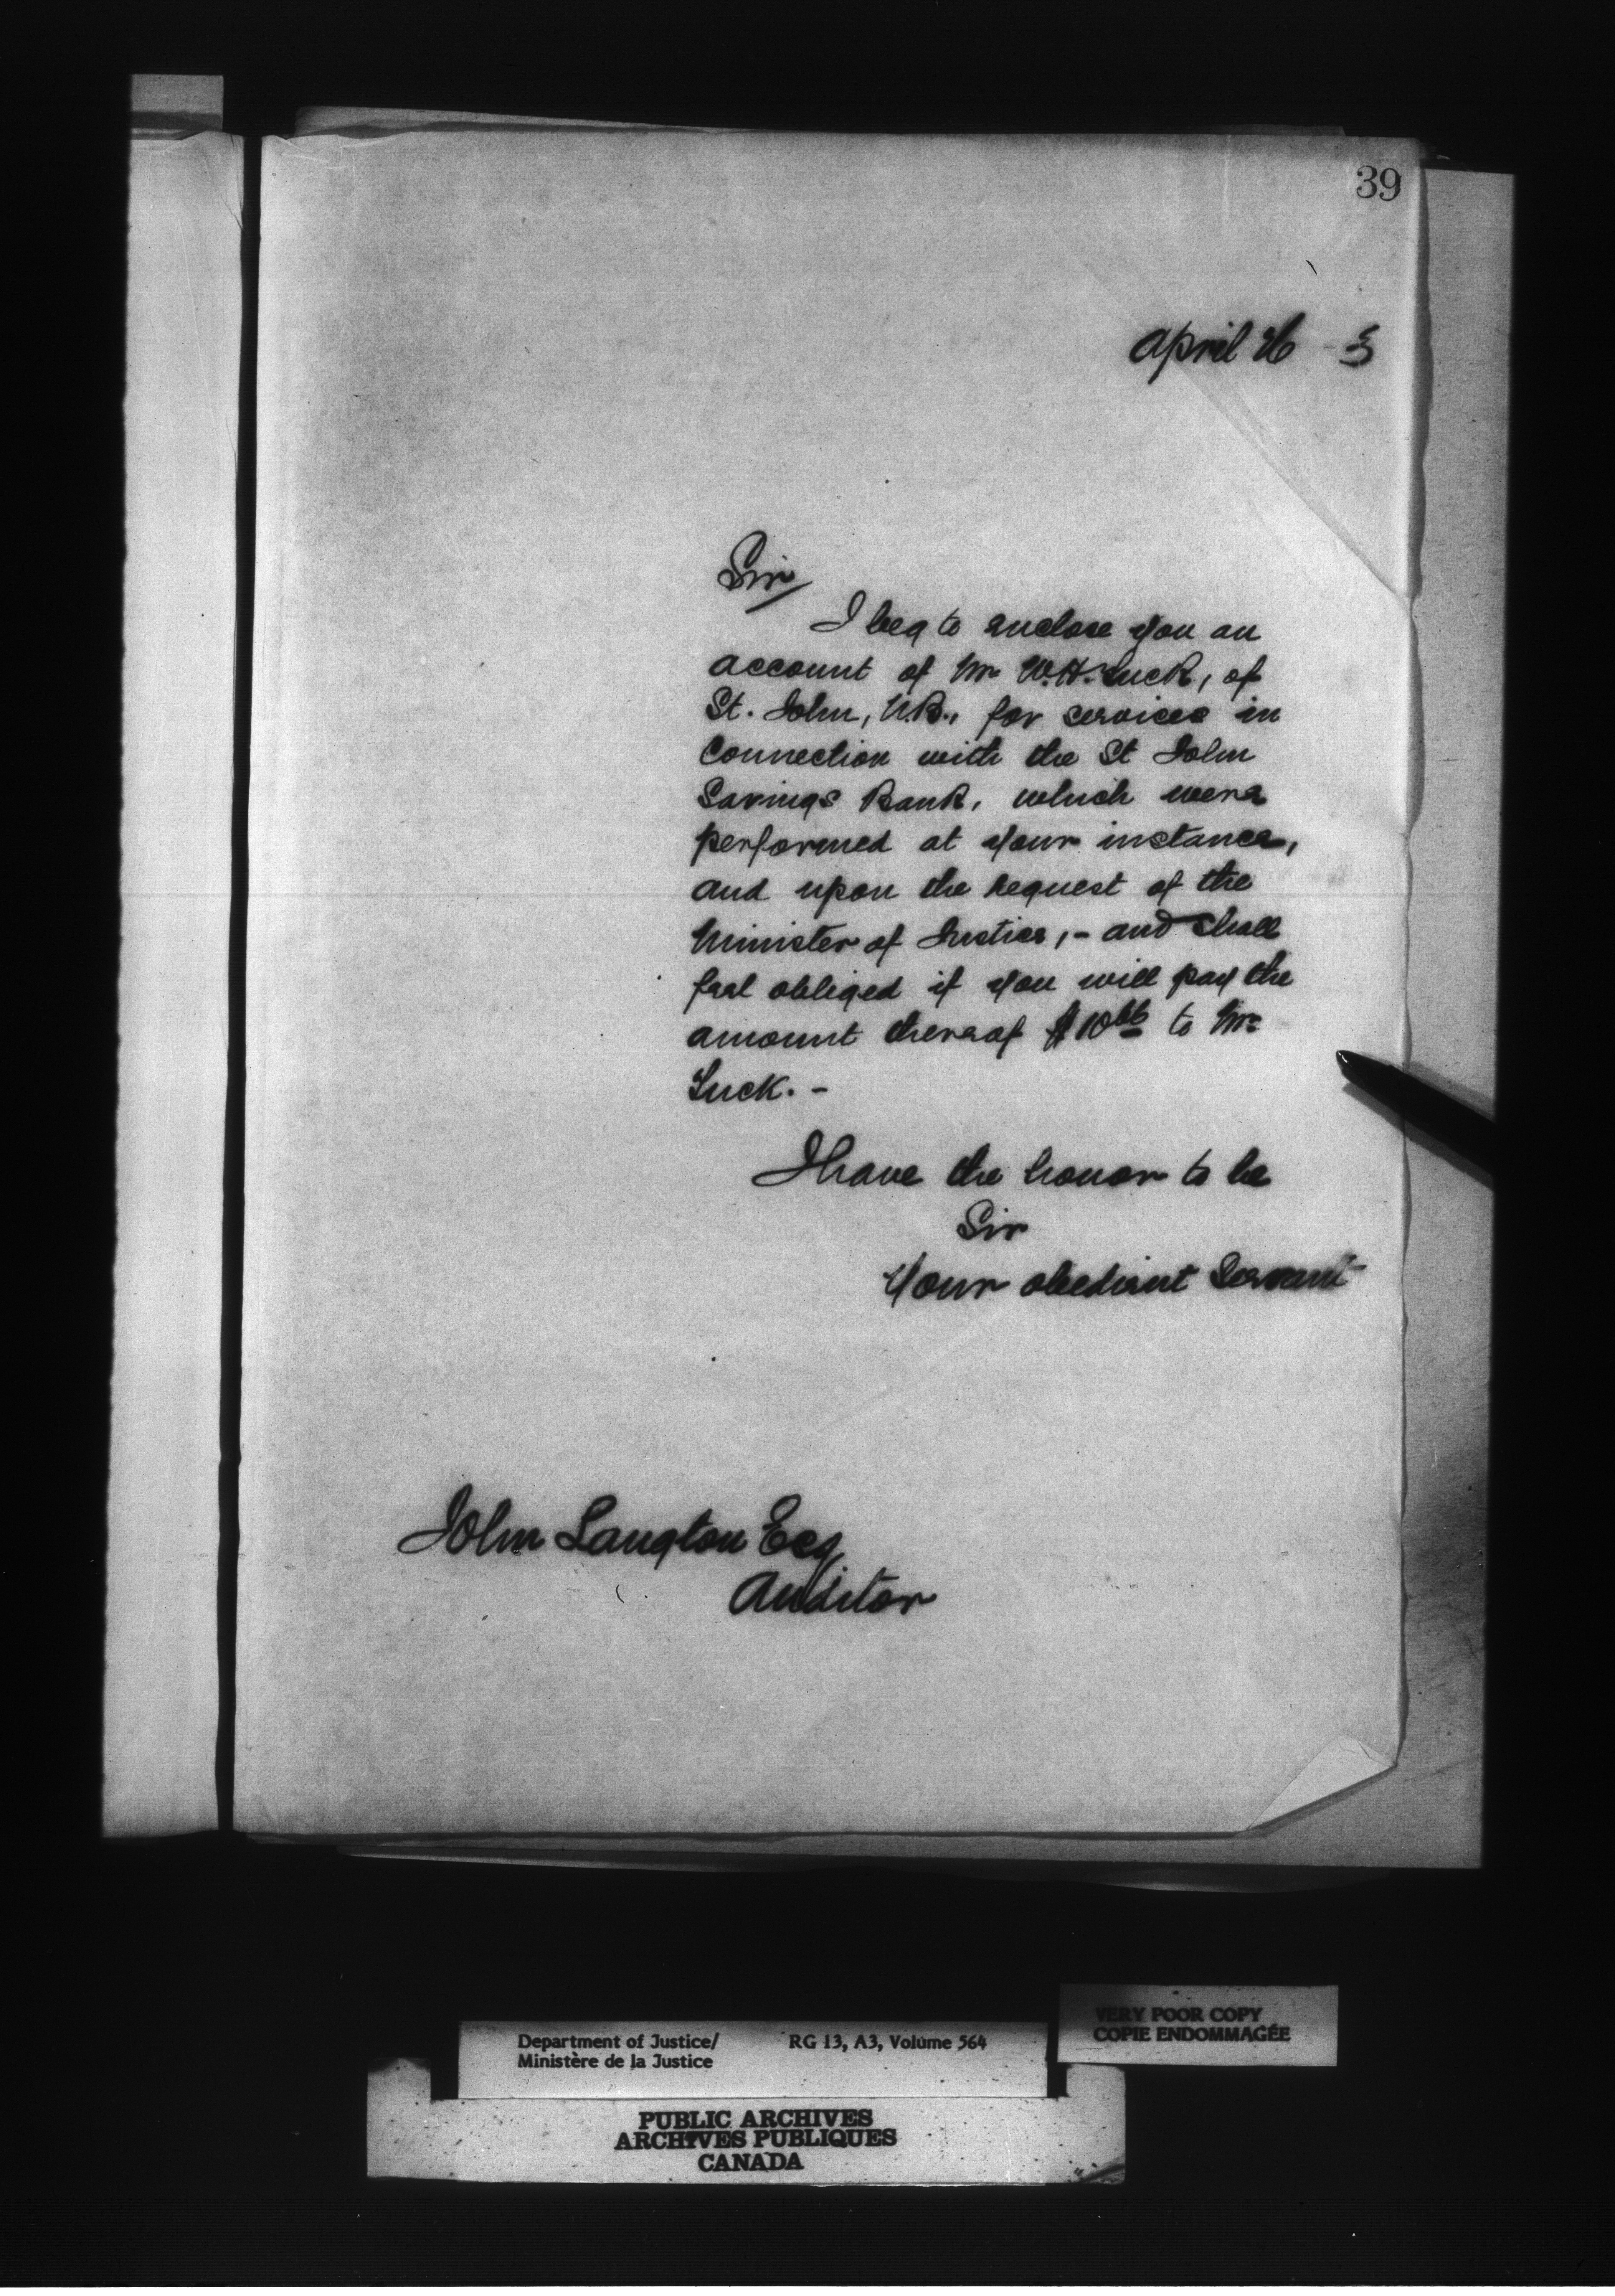 39
April 26 3
Sir
I beg to enclose you an
account of Mr W.H. Tuck, of
St. John, N.B., for services in
Connection with the St John
Savings Bank, which were
performed at your instance,
and upon the request of the
Minister of Justice, - and shall
feel obliged if you will pay the
amount thereof $10 to Mr
Tuck. -
I have the honor to be
Sir
Your obedient Servant
John Langton Esq
Auditor
VERY POOR COPY
COPIE ENDOMMAGÉE
Department of Justice/ RG 13, A3, Volume 564
Ministère de la Justice
PUBLIC ARCHIVES
ARCHIVES PUBLIQUES
CANADA